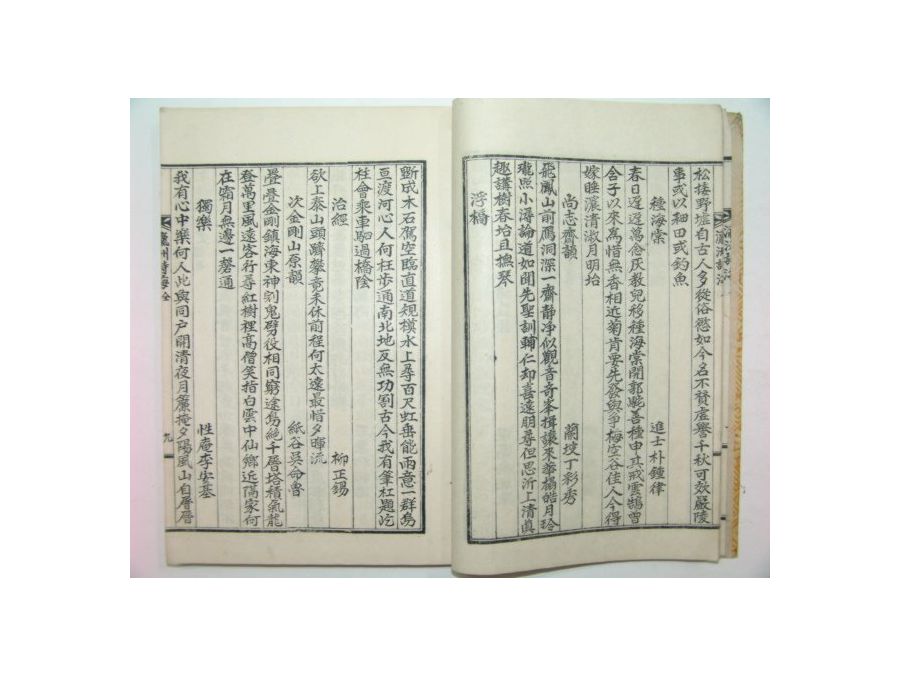 松捿野墟自古人多從俗慾如今名不聲虛譽千秋可效嚴陵
事或以細田或釣魚
種海棠 進士朴鍾律
春日遲遲萬念灰教兒移種海棠開郭駝善種申其戒雲鵠曾
含子以來馬惜無香相近菊肯要先發與爭梅空谷佳人今得
嫁睡濃清淑月明坮
尚志齋韻 蘭坡丁彩秀
飛鳳山前鷹洞深一齋静凈似觀音奇峯揖讓來華榻皓月玲
瓏照小潯論道如聞先聖訓輔仁却喜遠朋尋但思沂上清眞
趣講樹春坮且撫琴
浮橋
斷成木石駕空臨直道規模水上尋百尺虹垂能雨意一群烏
亘渡河心人何枉步通南北地反無功割古今我有筆杠題屹
柱會乘車駟過橋陰
治經 柳正錫
欲上泰山頭躋攀竟未休前程何太遠最惜夕暉流
次金剛山原韻 紙谷吳命魯
疊疊金剛鎮海東神剜鬼劈役相同窮途易絶千層塔積氣能
登萬里風遠客行尋紅樹裡高僧笑指白雲中仙鄉近隔家何
在霜月無邊一磬通
獨樂 性庵李安基
我有心中樂何人此與同戶開清夜月簾掩夕陽風山自層層
瀛州詩海全 九